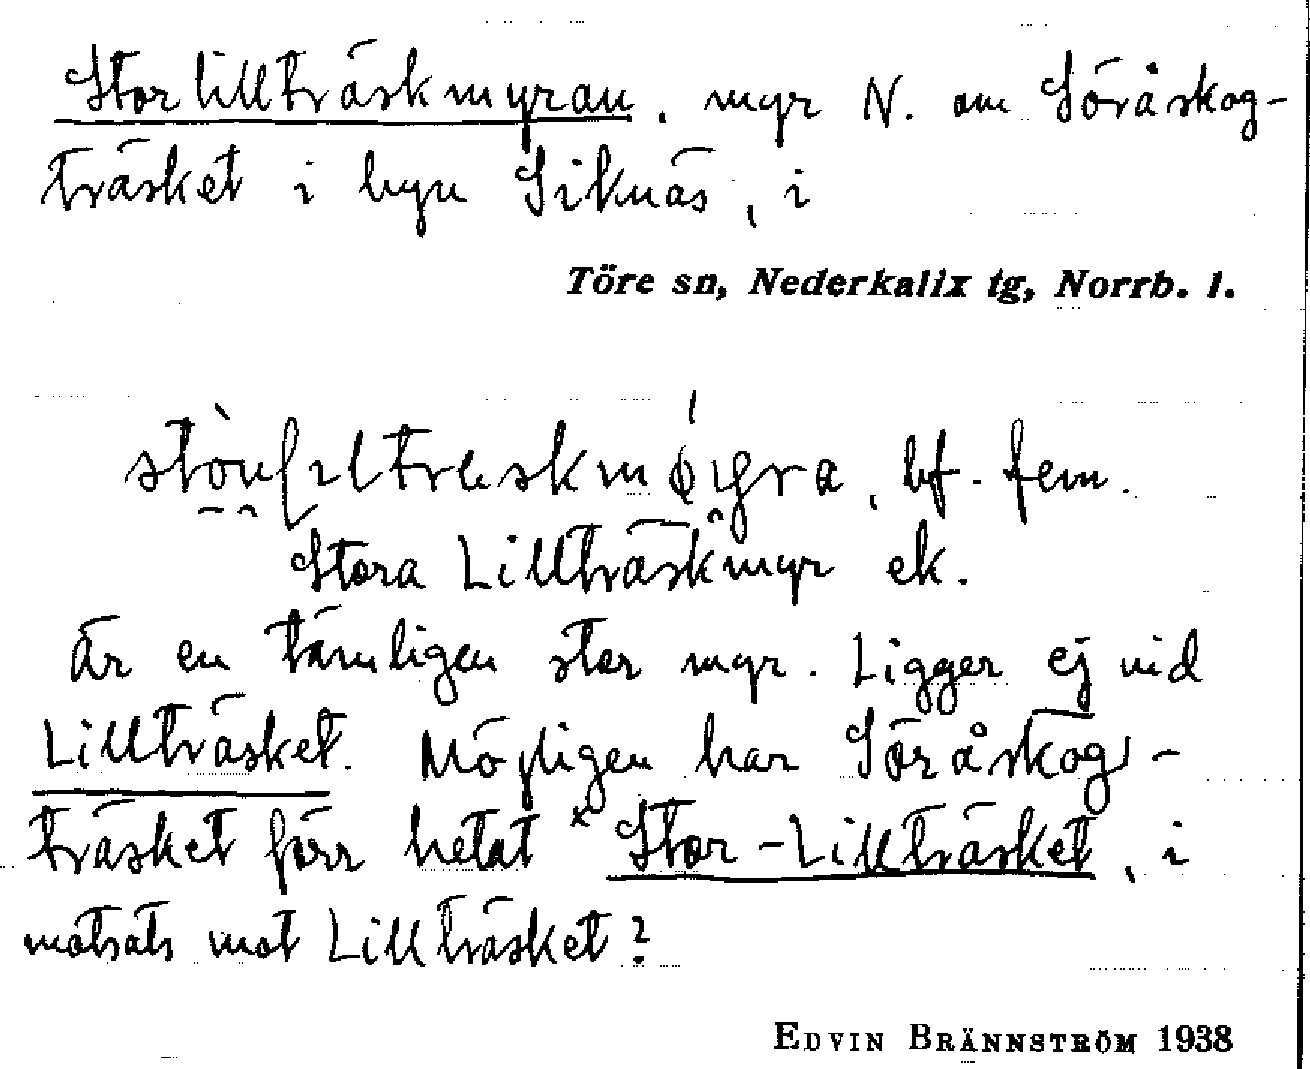 Storlillträskmyran, myr N. om Söråskog-
träsket i byn Siknäs, i
Töre sn, Nederkalix tg, Norrb. l.
bf. fem.
Stora Lillträskmyr ek.
Är en tämligen stor myr. Ligger ej vid
Lillträsket. Möjligen har Söråskog-
träsket förr hetat *Stor-Lillträsket, i
motsats mot Lillträsket?
EDVIN BRÄNNSTRÖM 1938